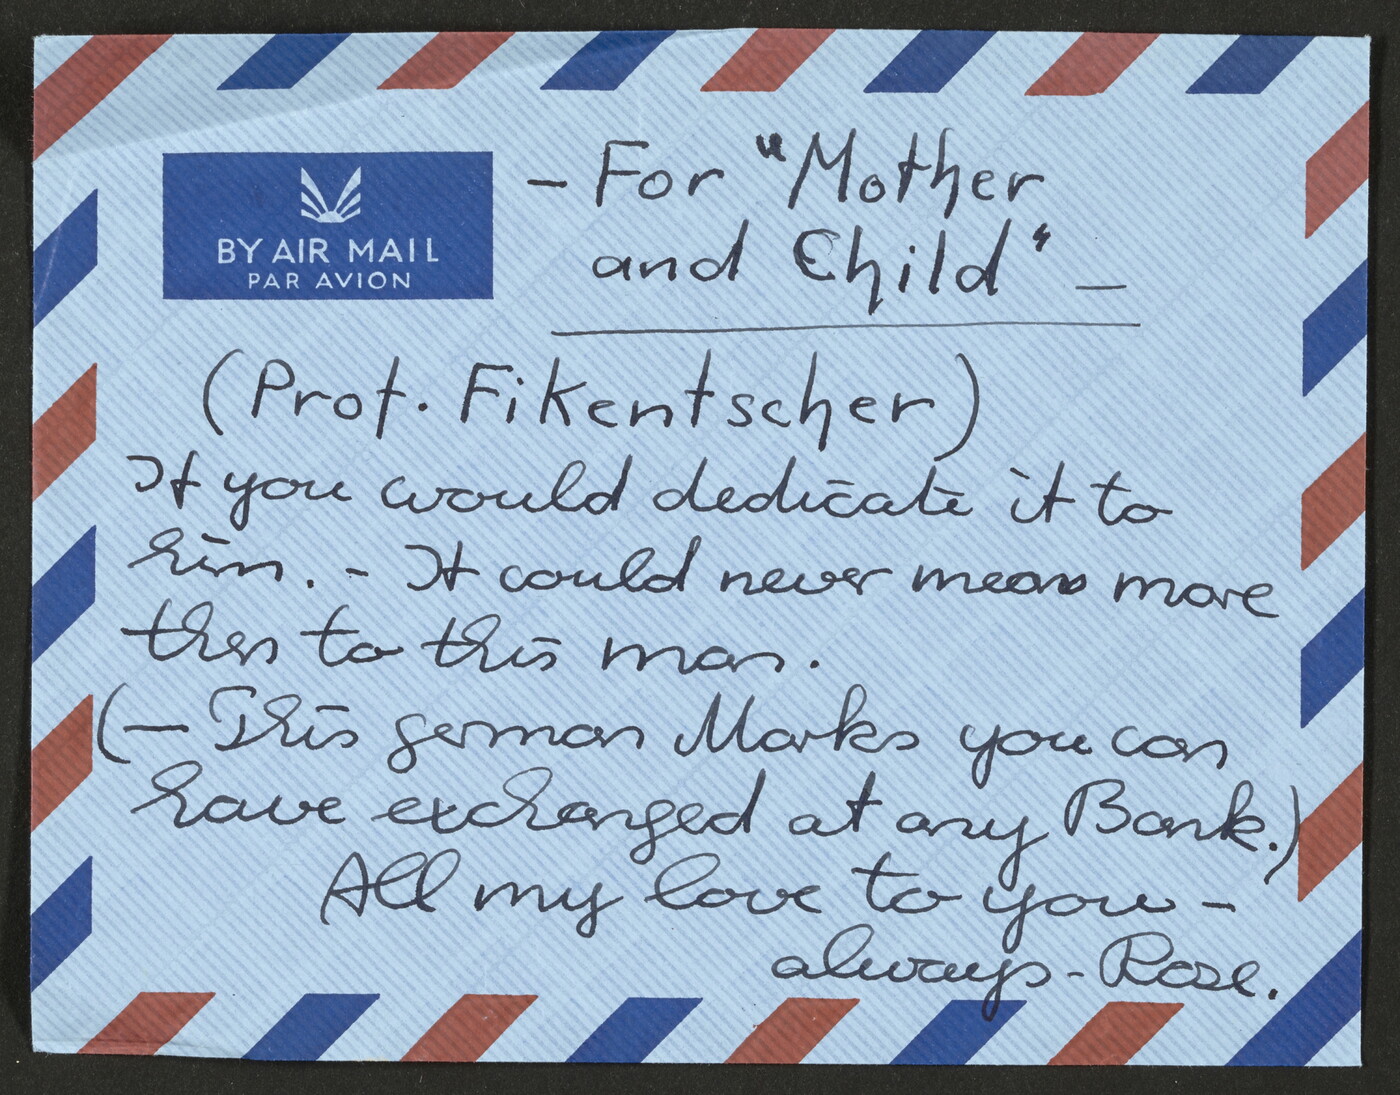 BY AIR MAIL
PAR AVION
- For "Mother
and Child" -
(Prof. Fikentscher)
If you would dedicate it to
him. - It could never mean more
then to this man.
(- This german Marks you can
have exchanged at any Bank.)
All my love to you -
always - Rose.